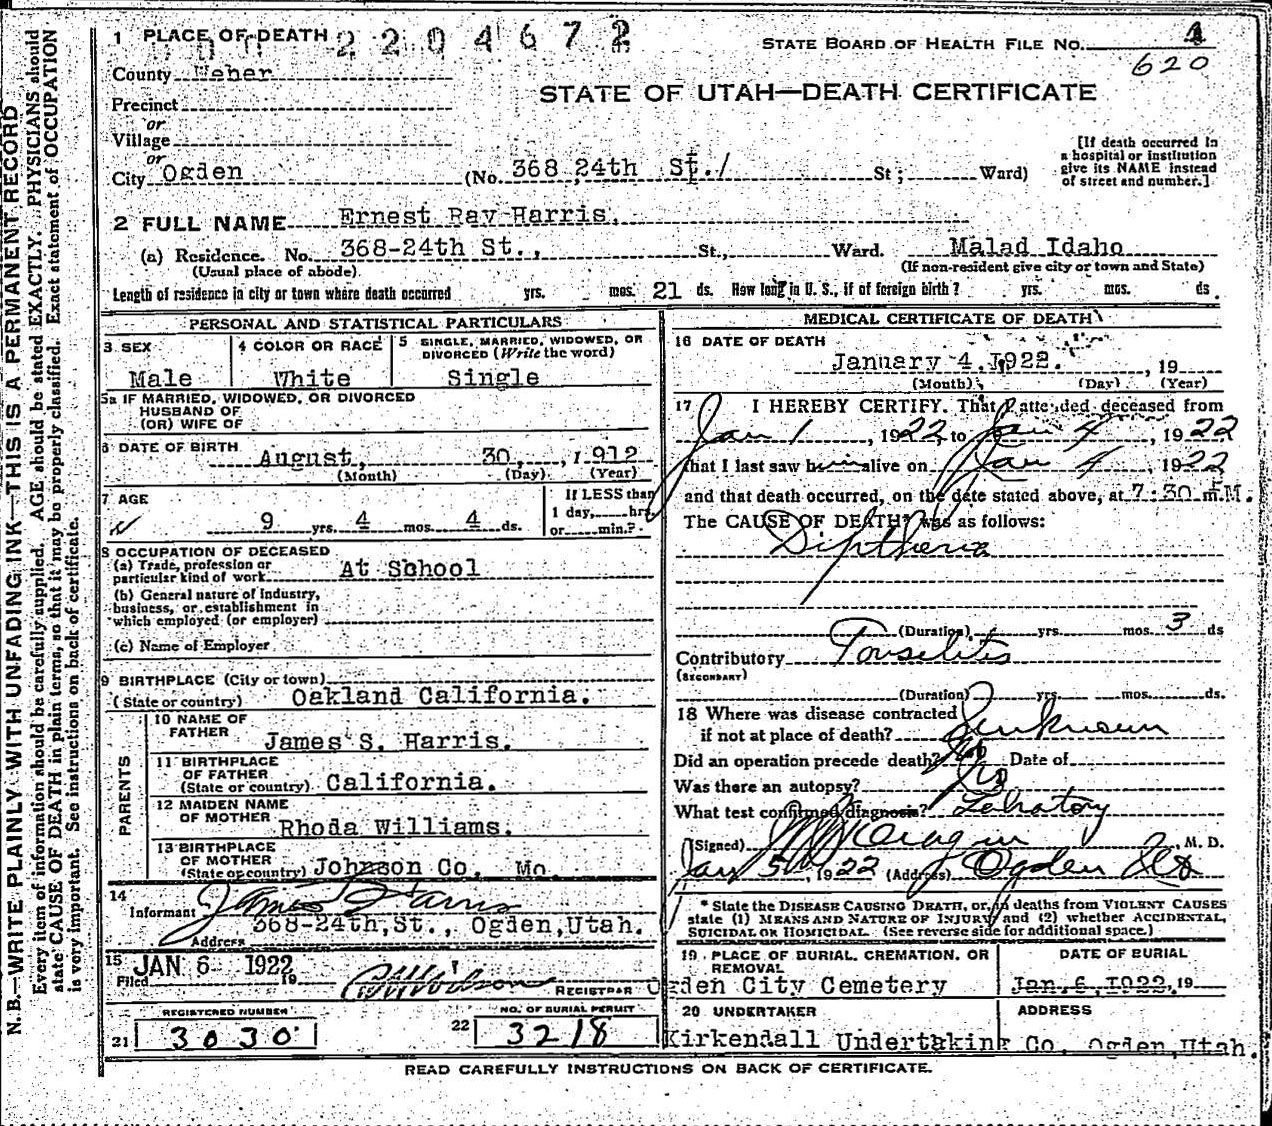 N.B.—WRITE PLAINLY WITH UNFADING INK—THIS IS A PERMANENT RECORD
Every item of information should be carefully supplied. AGE should be stated EXACTLY. PHYSICIANS should
state CAUSE OF DEATH in plain terms, so that it may be properly classified. Exact statement of OCCUPATION
is very important. See instructions on back of certificate.
1 PLACE OF DEATH 2204672
STATE BOARD OF HEALTH FILE NO. 4
620
County Weber
STATE OF UTAH—DEATH CERTIFICATE
Precinct
or
Village
or
City Ogden (No. 368 24th St./ St; Ward)
[If death occurred in
a hospital or institution
give its NAME instead
of street and number.]
2 FULL NAME Ernest Ray Harris.
(a) Residence. No. 368-24th St., St., Ward. Malad Idaho
(Usual place of abode) (If non-resident give city or town and State)
Length of residence in city or town where death occurred yrs. mos. 21 ds. How long in U. S., if of foreign birth? yrs. mos. ds.
PERSONAL AND STATISTICAL PARTICULARS
3 SEX
Male
4 COLOR OR RACE
White
5 SINGLE, MARRIED, WIDOWED, OR
DIVORCED (Write the word)
Single
5a IF MARRIED, WIDOWED, OR DIVORCED
HUSBAND OF
(OR) WIFE OF
6 DATE OF BIRTH August, 30, 1912
(Month) (Day) (Year)
7 AGE
9 yrs. 4 mos. 4 ds.
If LESS than
1 day, hrs.
or min.?
8 OCCUPATION OF DECEASED
(a) Trade, profession or
particular kind of work At School
(b) General nature of industry,
business, or establishment in
which employed (or employer)
(c) Name of Employer
9 BIRTHPLACE (City or town)
(State or country) Oakland California.
PARENTS
10 NAME OF
FATHER James S. Harris.
11 BIRTHPLACE
OF FATHER
(State or country) California.
12 MAIDEN NAME
OF MOTHER Rhoda Williams.
13 BIRTHPLACE
OF MOTHER
(State or country) Johnson Co. Mo.
14
Informant James S Harris
Address 368-24th,St., Ogden,Utah.
15
Filed JAN 6 1922 19
REGISTRAR
REGISTERED NUMBER
21 3030
NO. OF BURIAL PERMIT
22 3218
MEDICAL CERTIFICATE OF DEATH
16 DATE OF DEATH
January 4, 1922. , 19
(Month) (Day) (Year)
17 I HEREBY CERTIFY. That I attended deceased from
Jan 1 , 1922 to Jan 4 , 1922
that I last saw him alive on Jan 4 , 1922
and that death occurred, on the date stated above, at 7:30 P.M.
The CAUSE OF DEATH* was as follows:
Diptheria
(Duration) yrs. mos. 3 ds
Contributory Tonselitis
(SECONDARY)
(Duration) yrs. mos. ds.
18 Where was disease contracted
if not at place of death? Unknown
Did an operation precede death? No Date of
Was there an autopsy? No
What test confirmed diagnosis? Labratory
(Signed) M. D.
Jan 5, 1922 (Address) Ogden Ut
* State the DISEASE CAUSING DEATH, or, in deaths from VIOLENT CAUSES
state (1) MEANS AND NATURE OF INJURY and (2) whether ACCIDENTAL,
SUICIDAL OR HOMICIDAL. (See reverse side for additional space.)
19 PLACE OF BURIAL, CREMATION, OR
REMOVAL
Ogden City Cemetery
DATE OF BURIAL
Jan. 6, 1922, 19
20 UNDERTAKER
Kirkendall Undertaking Co.
ADDRESS
Ogden,Utah.
READ CAREFULLY INSTRUCTIONS ON BACK OF CERTIFICATE.